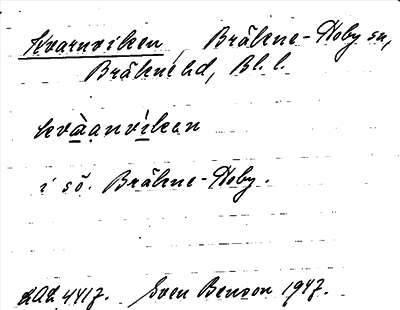 Kvarnviken, Bräkne-Hoby sn,
Bräkne hd, Bl. l.
kvàanvíkan
i sö. Bräkne-Hoby.
LAL 4417. Sven Benson 1947.